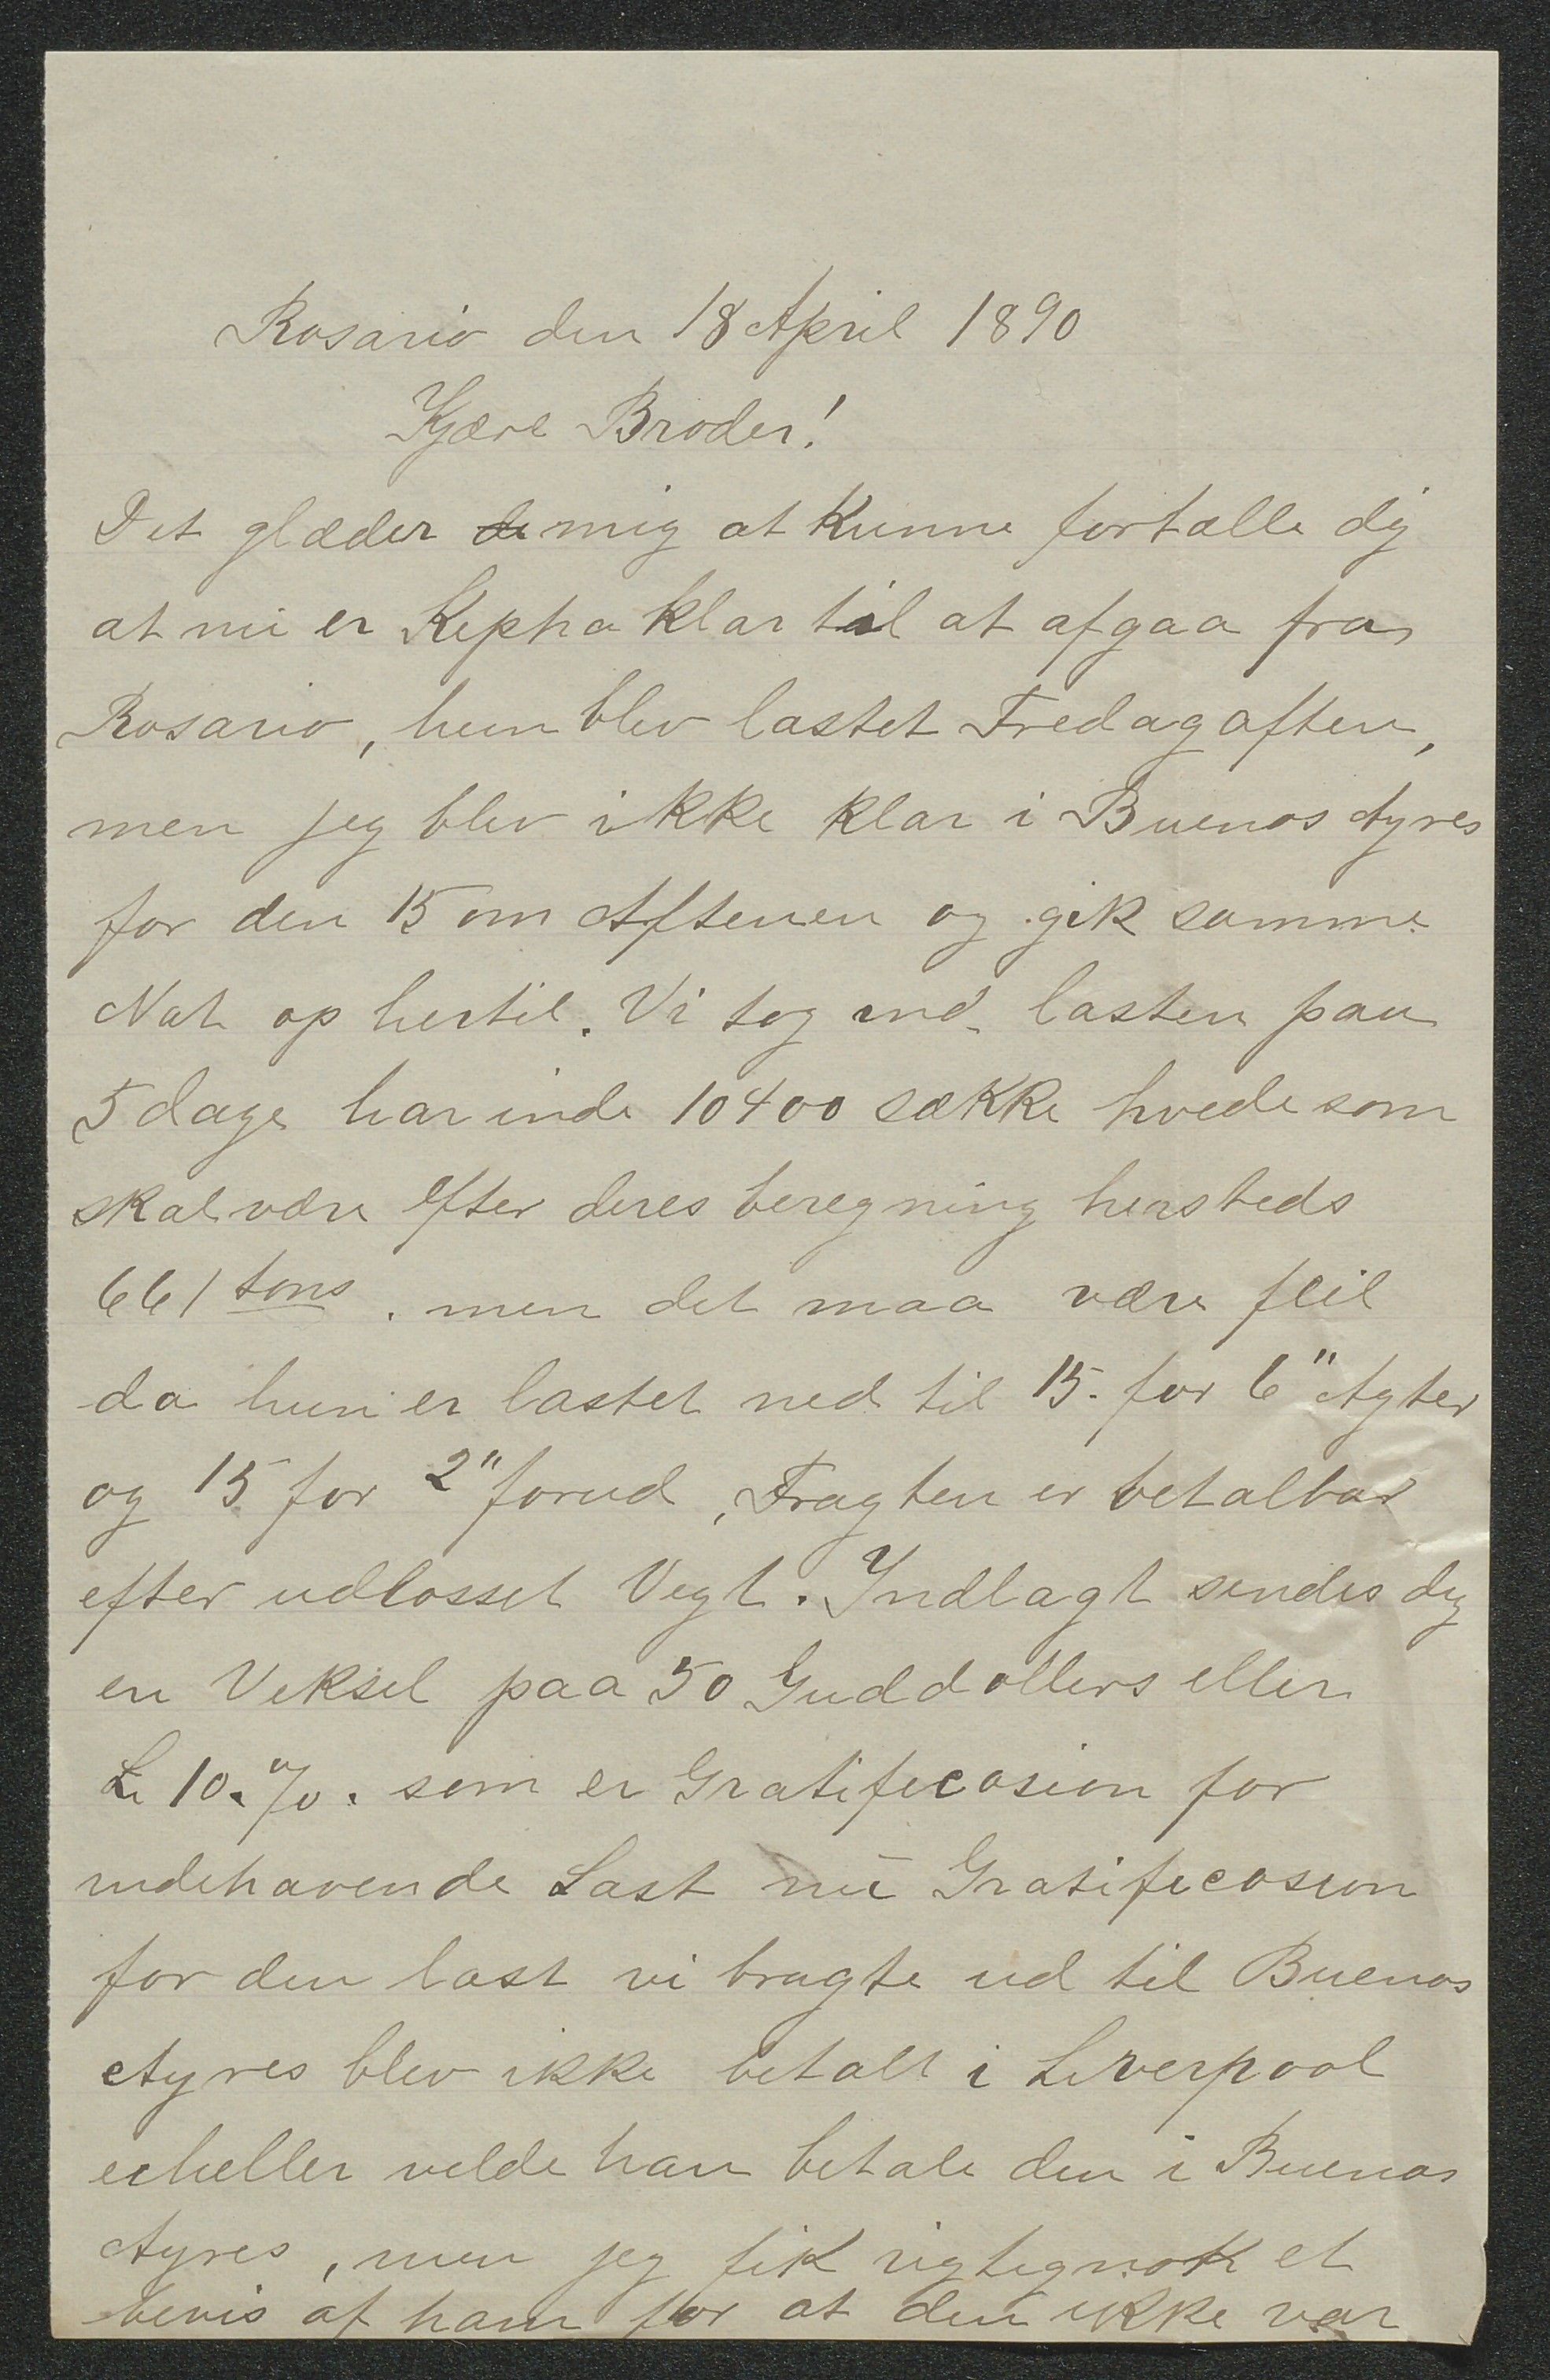 Rosario den 18 April 1890
Kjære Broder!
Det glæder de mig at kunne fortælle dig
at nu er Kepha klar til at afgaa fra
Rosario, hun blev lastet Fredag aften,
men jeg blev ikke klar i Buenos Ayres
for den 15 om Aftenen og gik samme
Nat op hertil. Vi tog ind lasten paa
5 dage har inde 10400 sække hvede som
skal være efter deres beregning hersteds
661 tons. men det maa være feil
da hun er lastet ned til 15. for 6" Agter
og 15 for 2" forud, Fragten er betalbar
efter udlosset Vegt. Indlagt sendes dig
en Veksel paa 50 Gulddollers eller
L 10.%. som er Gratifecasion for
indehavende Last nu Gratifecasion
for den last vi bragte ud til Buenos
Ayres blev ikke betalt i Liverpool
eiheller velde han betale den i Buenos
Ayres, men jeg fik rigtignok et
bevis af ham for at den ikke var